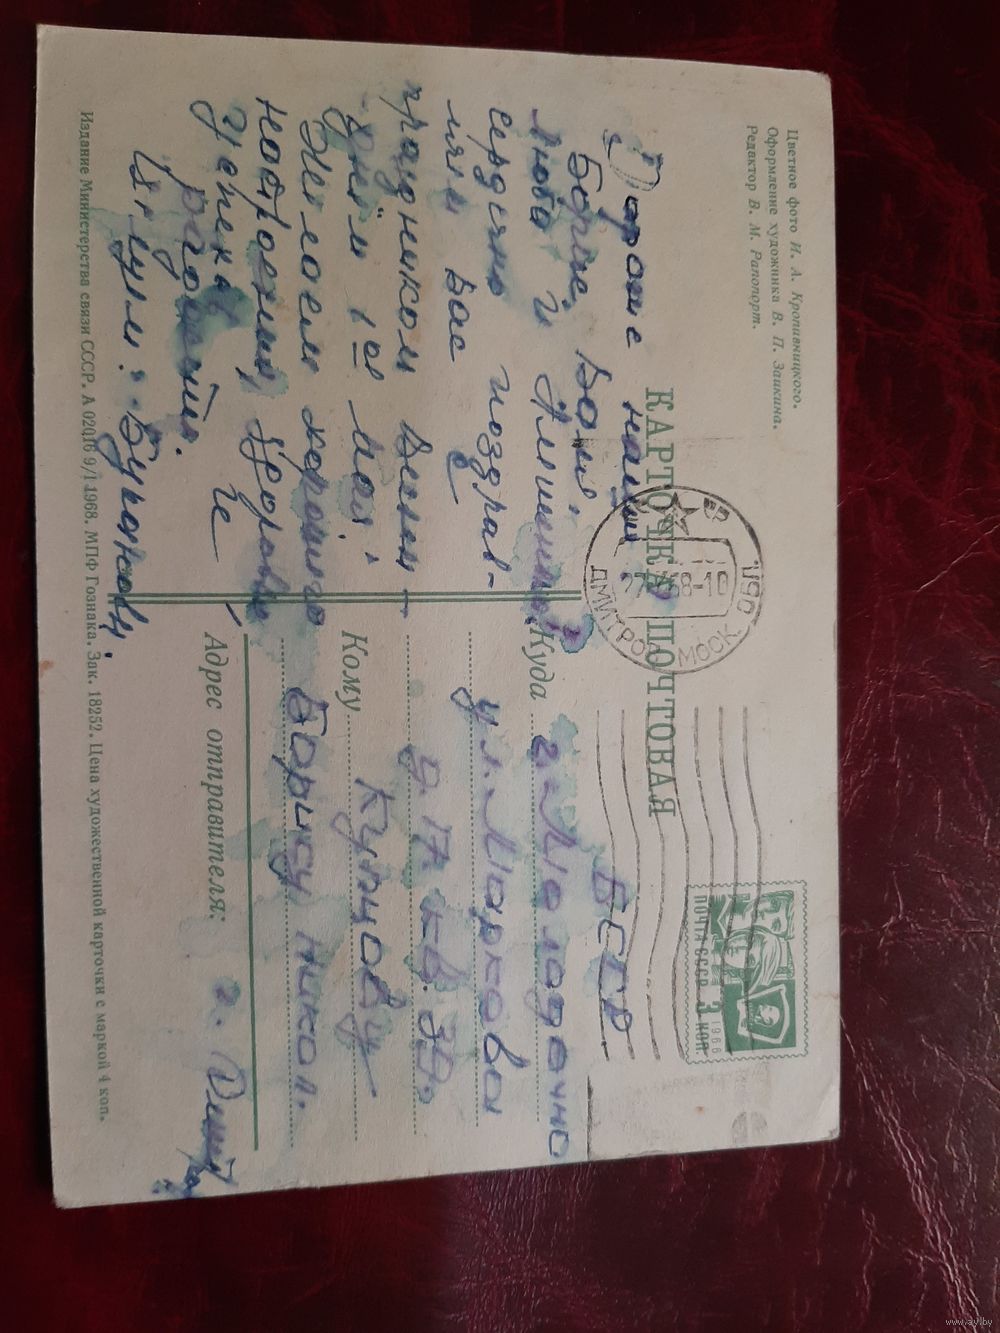 Цветное фото И. А. Кропивницкого.
Оформление художника В. П. Заикина.
Редактор В. М. Рапопорт.
КАРТОЧКА ПОЧТОВАЯ
ПОЧТА СССР 3 КОП.
1966
ДМИТРОВ МОСК. ОБЛ
68-10
Дорогие наши
Борис, Валя,
Люба и
сердечно поздрав-
ляем Вас с
праздником Весны -
днём 1го Мая!
Желаем хорошего
настроения, здоровья
успеха в
работе.
Целуем: Бурановы.
БССР
Куда г. Молодечно
ул. Маркова
д 17 кв. 30.
Кому Купцову
Борису Никол.
Адрес отправителя: г. Дмитров
Издание Министерства связи СССР. А 02016 9/I 1968. МПФ Гознака. Зак. 18252. Цена художественной карточки с маркой 4 коп.
www.ay.by